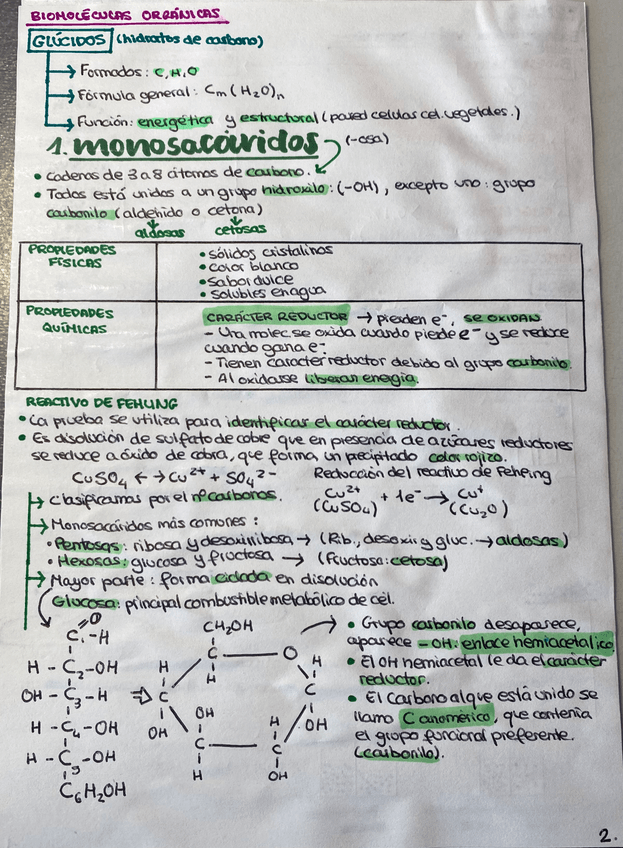 BIOMOLÉCULAS ORGÁNICAS
GLÚCIDOS (hidratos de carbono)
→ Formados: C, H, O
→ Fórmula general: Cm(H₂O)n
→ Función: energética y estructural (pared celulas cel. vegetales.)
1. monosacáridos (-osa)
• Cadenas de 3 a 8 átomos de carbono.
• Todos está unidos a un grupo hidroxilo: (-OH), excepto uno: grupo
carbonilo (aldehido o cetona)
aldosas cetosas
PROPIEDADES FÍSICAS
• sólidos cristalinos
• color blanco
• sabor dulce
• solubles en agua
PROPIEDADES QUÍMICAS
CARÁCTER REDUCTOR → pierden e⁻, SE OXIDAN
- Una molec. se oxida cuando pierde e⁻ y se reduce
cuando gana e⁻.
- Tienen carácter reductor debido al grupo carbonilo
- Al oxidarse liberan energía.
REACTIVO DE FEHLING
• La prueba se utiliza para identificar el carácter reductor.
• Es disolución de sulfato de cobre que en presencia de azúcares reductores
se reduce a óxido de cobra, que forma un precipitado color rojizo.
CuSO₄ ←→ Cu²⁺ + SO₄²⁻ Reducción del reactivo de Fehling
Cu²⁺ + 1e⁻ → Cu⁺
(CuSO₄) (Cu₂O)
→ Clasificamos por el nº carbonos.
→ Monosacáridos más comunes:
• Pentosas: ribosa y desoxirribosa → (Rib., desoxir y gluc. → aldosas)
• Hexosas: glucosa y fructosa → (Fructosa: cetosa)
→ Mayor parte: forma ciclada en disolución
Glucosa: principal combustible metabólico de cél.
O
C₁-H
H - C₂-OH
OH - C₃-H
H - C₄-OH
H - C₅-OH
C₆H₂OH
⇒
CH₂OH
C O
H H H
C C
OH OH H OH
C C
H OH
• Grupo carbonilo desaparece,
aparece -OH: enlace hemiacetalico
• El OH hemiacetal le da el carácter
reductor.
• El Carbono al que está unido se
llamo C anomérico, que contenía
el grupo funcional preferente.
(carbonilo).
2.